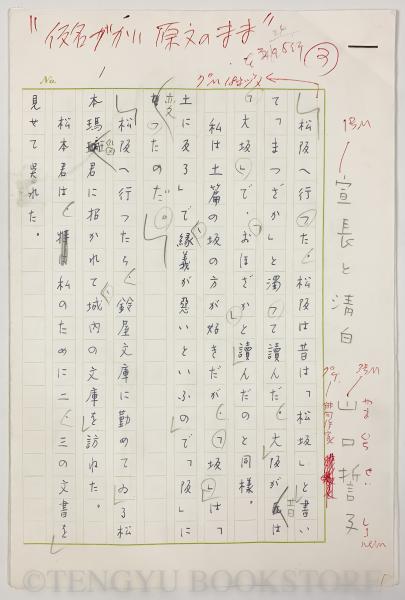 "仮名づかい 原文のまま"
③
No.
1
宣長と清白
山口誓子
やま ぐち せい し
俳句作家
松阪へ行つた。松阪は昔は「松坂」と書い
て「まつざか」と濁つて読んだ。大阪が昔は
「大坂」で、おほざかと讀んだのと同様。
私は土篇の坂の方が好きだが、「坂」はつ
土に反る」で縁義が惡いといふので「阪」に
変つたのだ。
松阪へ行つたら、鈴屋文庫に勤めてゐる松
本君に招かれて城内の文庫を訪ねた。
松本君は、私のために二、三の文書を
見せて呉れた。
©TENGYU BOOKSTORE